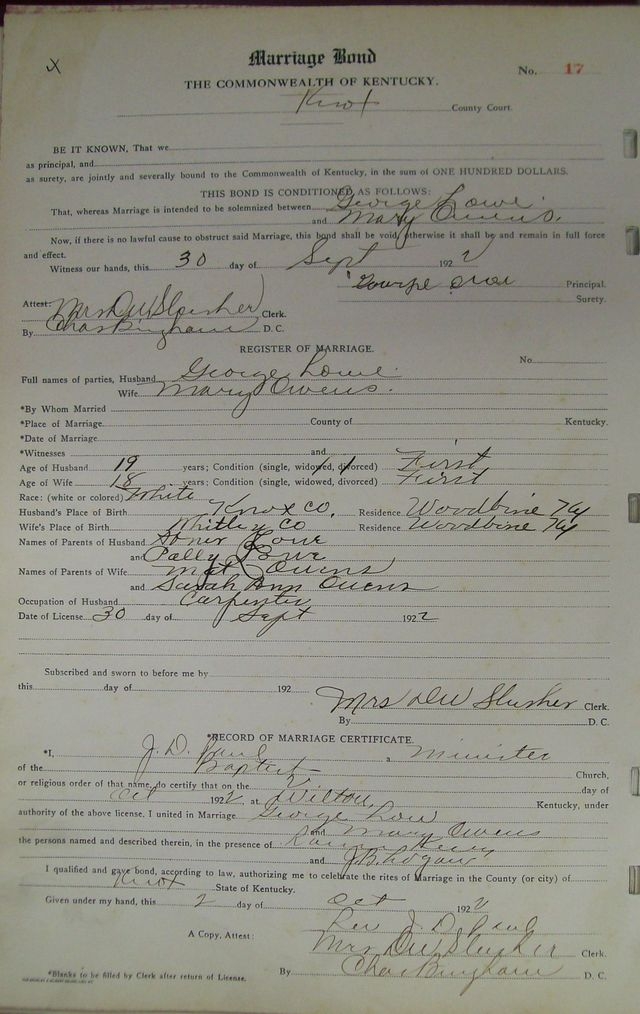 X
Marriage Bond
No. 17
THE COMMONWEALTH OF KENTUCKY.
Knox County Court.
BE IT KNOWN, That we
as principal, and
as surety, are jointly and severally bound to the Commonwealth of Kentucky, in the sum of ONE HUNDRED DOLLARS.
THIS BOND IS CONDITIONED AS FOLLOWS:
That, whereas Marriage is intended to be solemnized between George Lowe
and Mary Owens.
Now, if there is no lawful cause to obstruct said Marriage, this bond shall be void, otherwise it shall be and remain in full force
and effect.
Witness our hands, this 30 day of Sept 1922
Principal.
Surety.
Attest: Mrs D W Slusher Clerk.
By Chas Bingham D. C.
REGISTER OF MARRIAGE.
No.
Full names of parties, Husband George Lowe
Wife Mary Owens.
*By Whom Married
*Place of Marriage County of Kentucky.
*Date of Marriage
*Witnesses and
Age of Husband 19 years; Condition (single, widowed, divorced) First
Age of Wife 18 years; Condition (single, widowed, divorced) First
Race: (white or colored) White
Husband's Place of Birth Knox Co. Residence Woodbine Ky
Wife's Place of Birth Whitley Co Residence Woodbine Ky
Names of Parents of Husband Lowe
and Lowe
Names of Parents of Wife Owens
and Sarah Ann Owens
Occupation of Husband Carpenter
Date of License 30 day of Sept 1922
Subscribed and sworn to before me by
this day of 192
Mrs D W Slusher Clerk.
By D. C.
*RECORD OF MARRIAGE CERTIFICATE.
*I, J. D. Paul a Minister
of the Baptist Church,
or religious order of that name, do certify that on the 2 day of
Oct 1922, at Wilton, Kentucky, under
authority of the above license, I united in Marriage George Lowe
and Mary Owens
the persons named and described therein, in the presence of
and J. B.
I qualified and gave bond, according to law, authorizing me to celebrate the rites of Marriage in the County (or city) of
Knox State of Kentucky.
Given under my hand, this 2 day of Oct 1922
Rev J. D. Paul
A Copy, Attest: Mrs D W Slusher Clerk.
*Blanks to be filled by Clerk after return of License.
By Chas Bingham D. C.